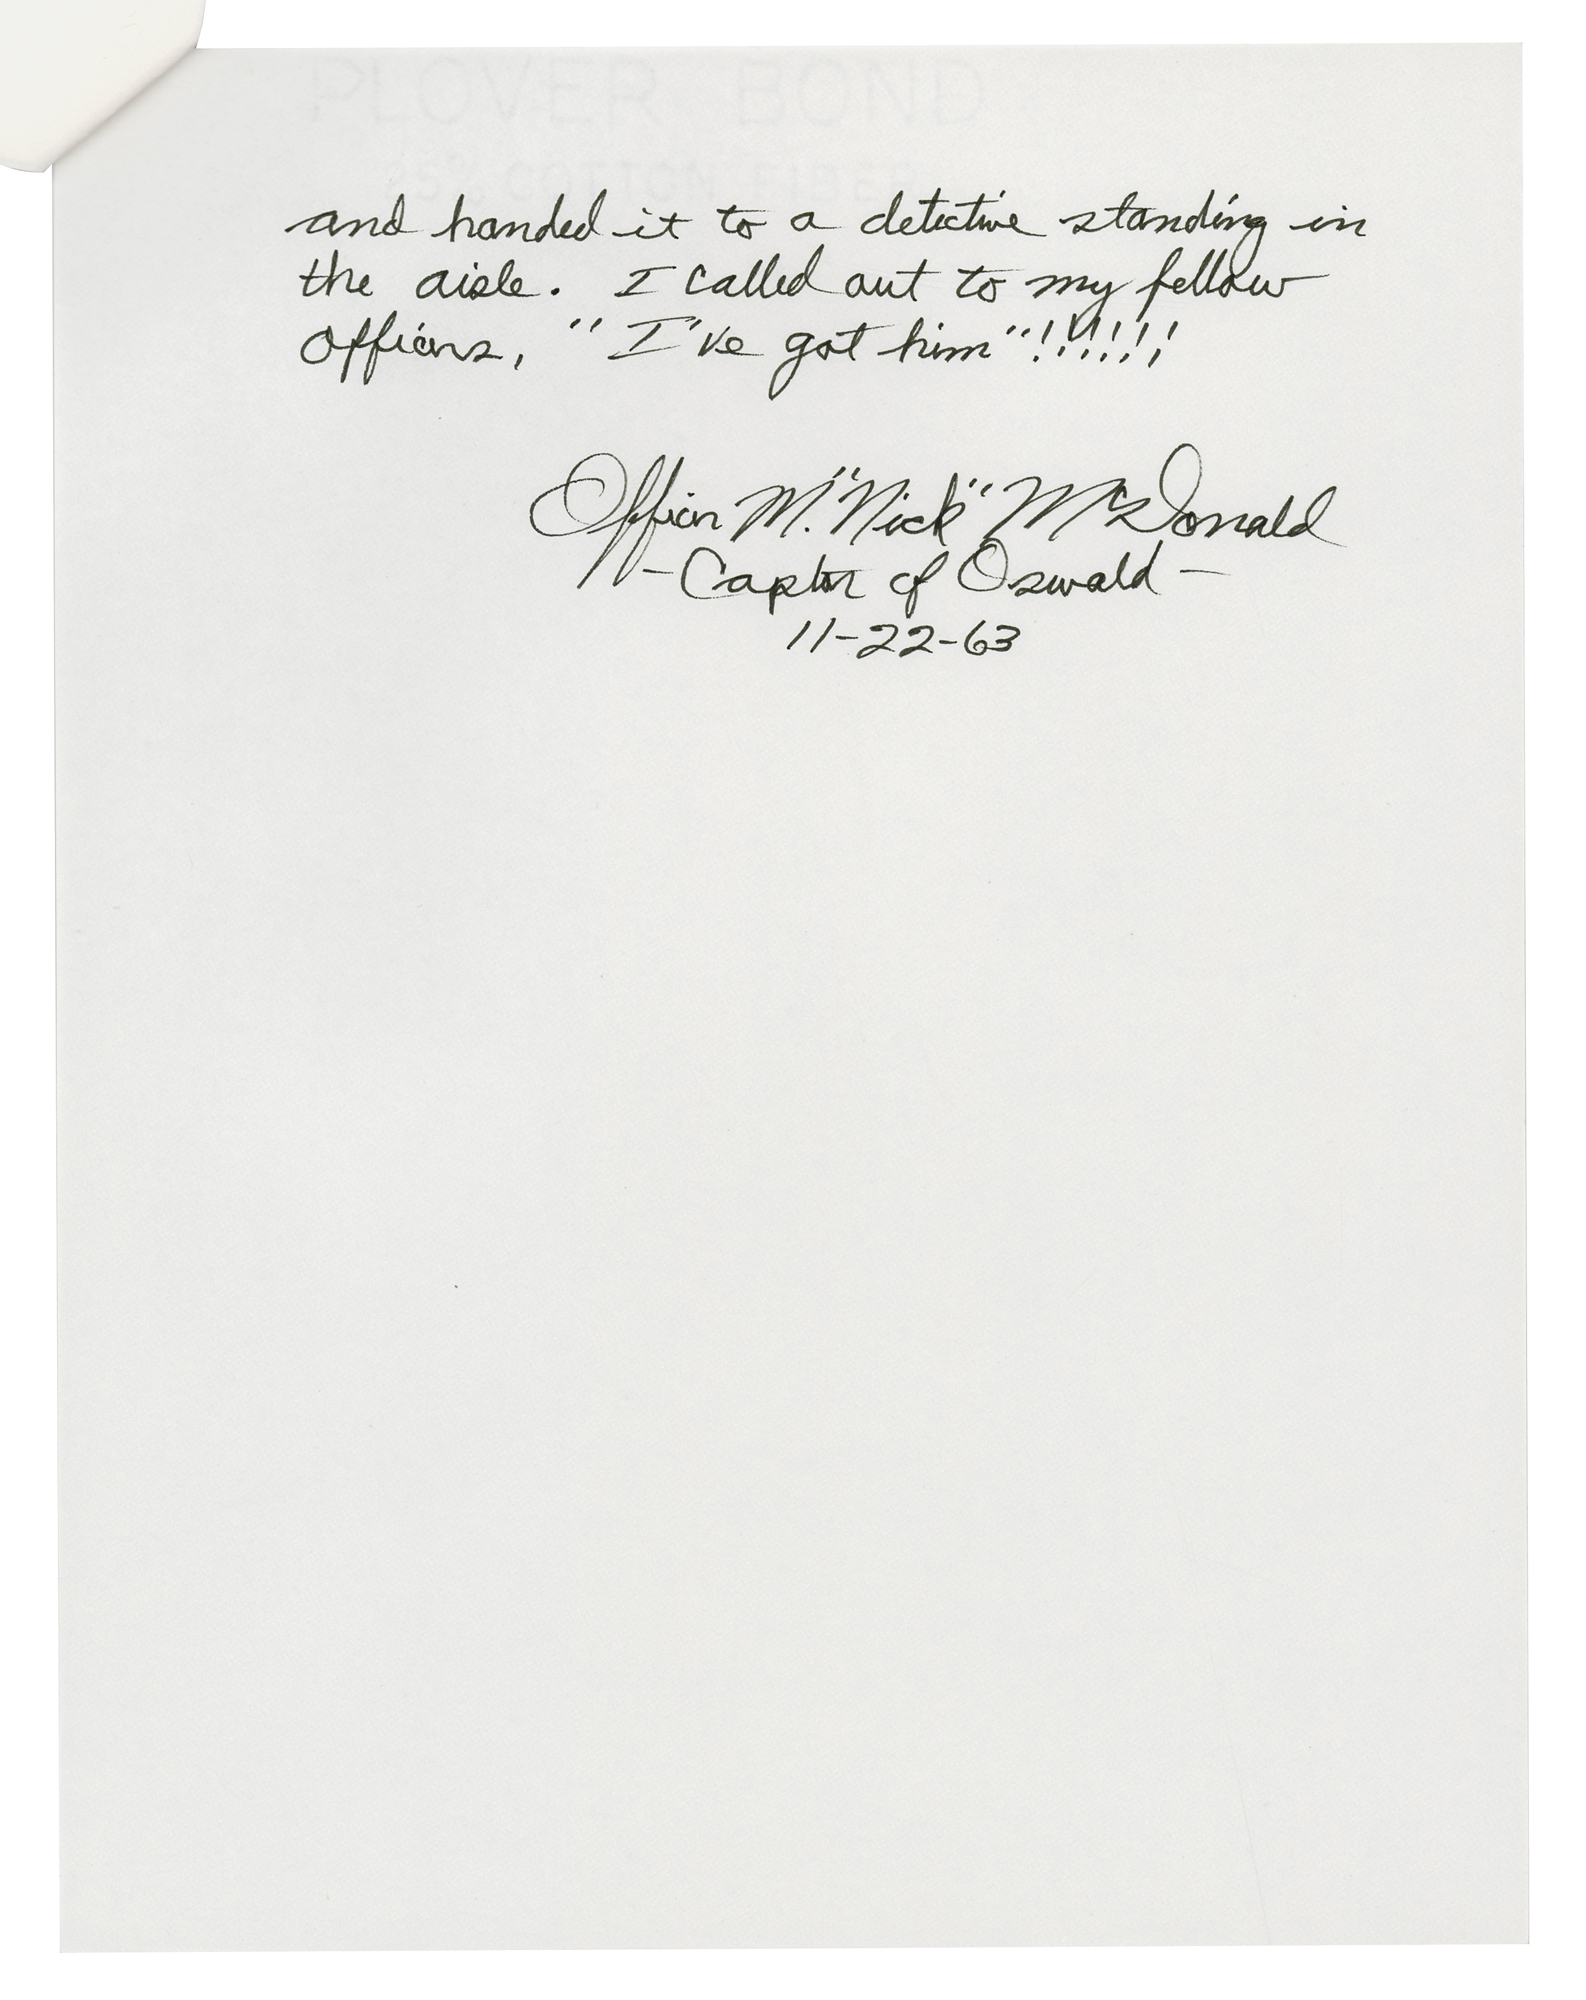 PLOVER BOND
25% COTTON FIBER
and handed it to a detective standing in
the aisle. I called out to my fellow
officers, "I've got him"!!!!!!
Officer M. "Nick" McDonald
- Captor of Oswald -
11-22-63